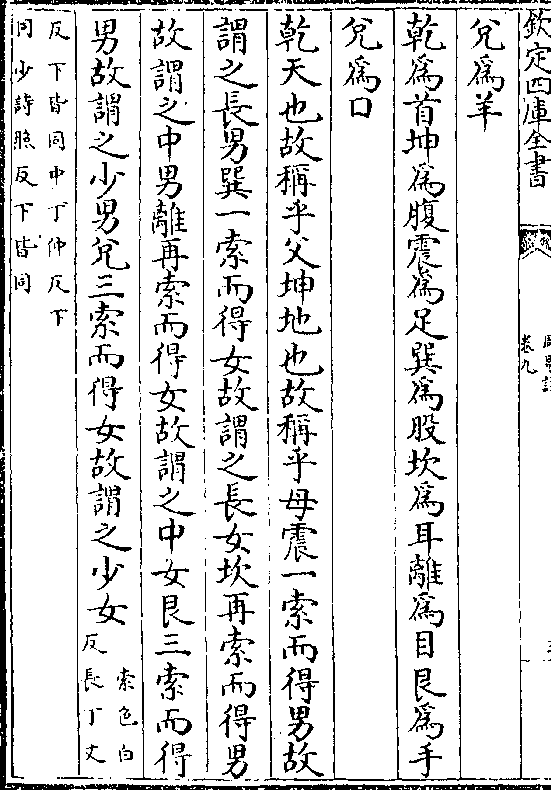 欽定四庫全書
卷九
兌為羊
乾為首坤為腹震為足巽為股坎為耳離為目艮為手
兌為口
乾天也故稱乎父坤地也故稱乎母震一索而得男故
謂之長男巽一索而得女故謂之長女坎再索而得男
故謂之中男離再索而得女故謂之中女艮三索而得
男故謂之少男兌三索而得女故謂之少女
索色白
反長丁丈
反下皆同中丁仲反下
同少詩照反下皆同